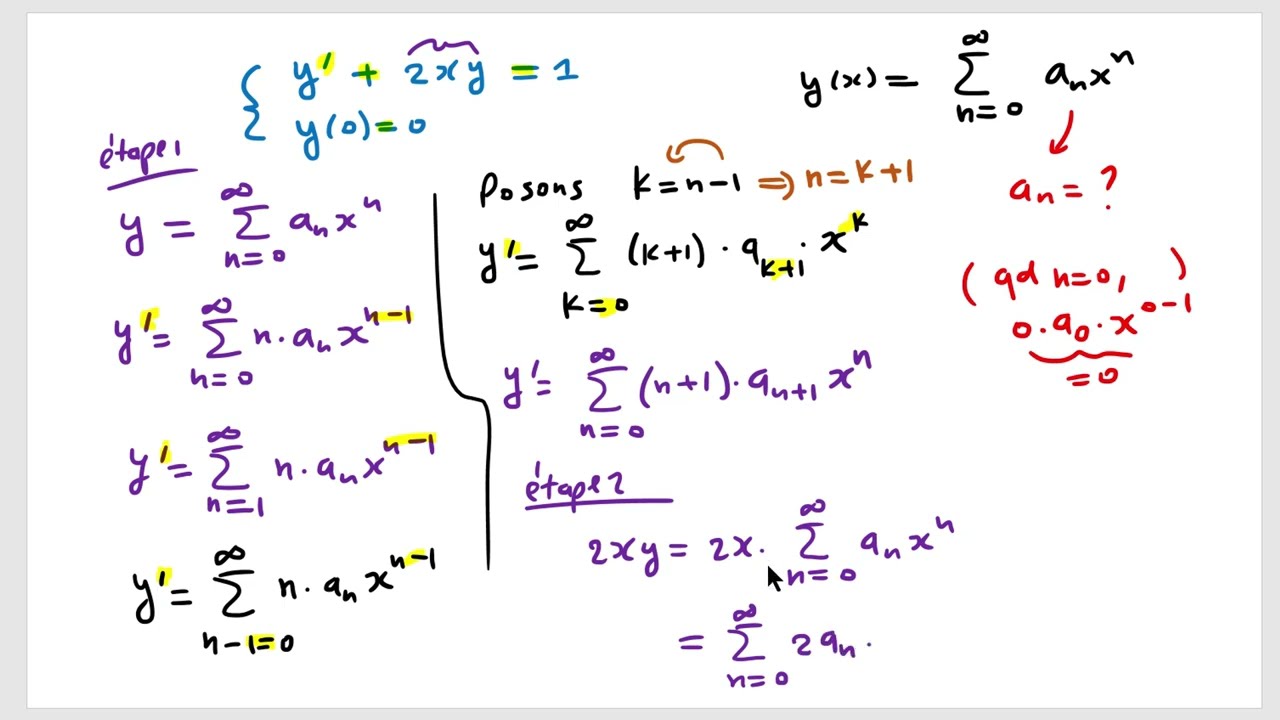 { y' + 2xy = 1
y(0) = 0
y(x) = ∑_{n=0}^{∞} a_n x^n
a_n = ?
( qd n=0, )
0 · a_0 · x^{0-1}
= 0
étape 1
y = ∑_{n=0}^{∞} a_n x^n
y' = ∑_{n=0}^{∞} n · a_n x^{n-1}
y' = ∑_{n=1}^{∞} n · a_n x^{n-1}
y' = ∑_{n-1=0}^{∞} n · a_n x^{n-1}
Posons k = n-1 ⇒ n = k+1
y' = ∑_{k=0}^{∞} (k+1) · a_{k+1} · x^k
y' = ∑_{n=0}^{∞} (n+1) · a_{n+1} x^n
étape 2
2xy = 2x · ∑_{n=0}^{∞} a_n x^n
= ∑_{n=0}^{∞} 2a_n ·